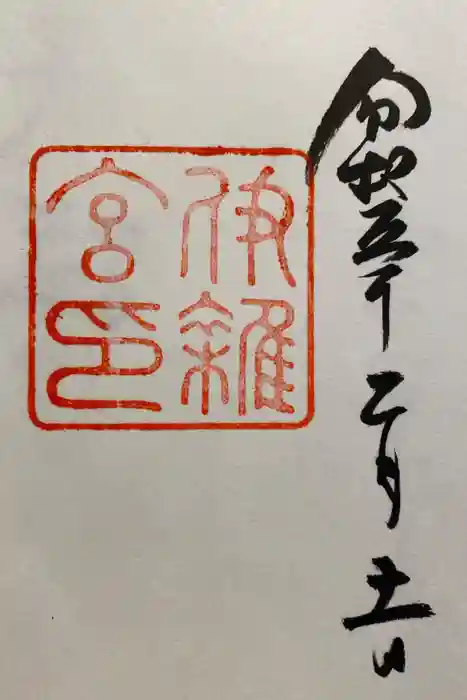 令和五年二月十一日
伊雜
宮印